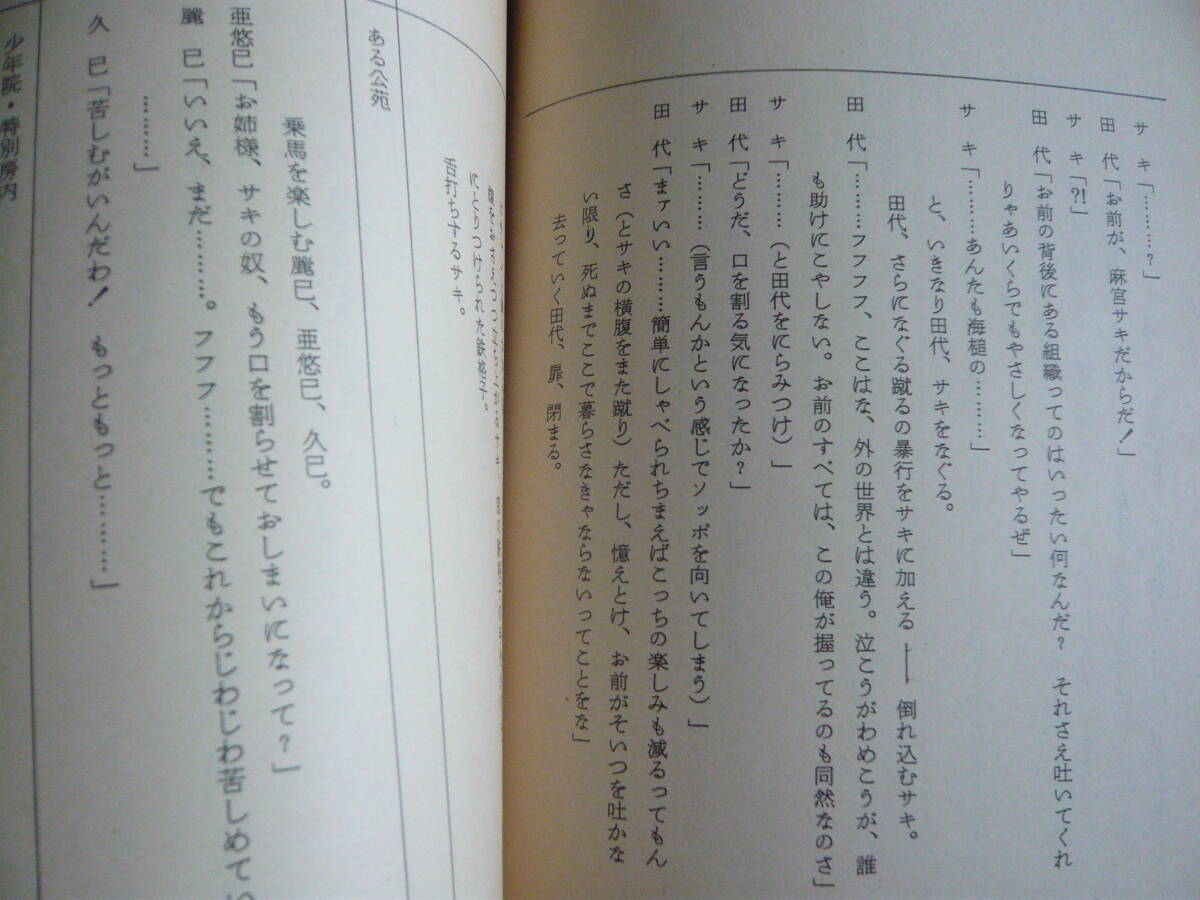 サ　キ「………？」
田　代「お前が、麻宮サキだからだ！」
サ　キ「?!」
田　代「お前の背後にある組織ってのはいったい何なんだ？　それさえ吐いてくれ
りゃあいくらでもやさしくなってやるぜ」
サ　キ「………あんたも海槌の………」
と、いきなり田代、サキをなぐる。
田代、さらになぐる蹴るの暴行をサキに加える――倒れ込むサキ。
田　代「………フフフフ、ここはな、外の世界とは違う。泣こうがわめこうが、誰
も助けにこやしない。お前のすべては、この俺が握ってるのも同然なのさ」
サ　キ「………（と田代をにらみつけ）」
田　代「どうだ、口を割る気になったか？」
サ　キ「………（言うもんかという感じでソッポを向いてしまう）」
田　代「まァいい………簡単にしゃべられちまえばこっちの楽しみも減るってもん
さ（とサキの横腹をまた蹴り）ただし、憶えとけ、お前がそいつを吐かな
い限り、死ぬまでここで暮らさなきゃならないってことをな」
去っていく田代、扉、閉まる。
にとりつけられた鉄格子。
舌打ちするサキ。
ある公苑
乗馬を楽しむ麗巳、亜悠巳、久巳。
亜悠巳「お姉様、サキの奴、もう口を割らせておしまいになって？」
麗　巳「いいえ、まだ………。フフフ………でもこれからじわじわ苦しめてい
………」
久　巳「苦しむがいんだわ！　もっともっと………」
少年院・特別房内